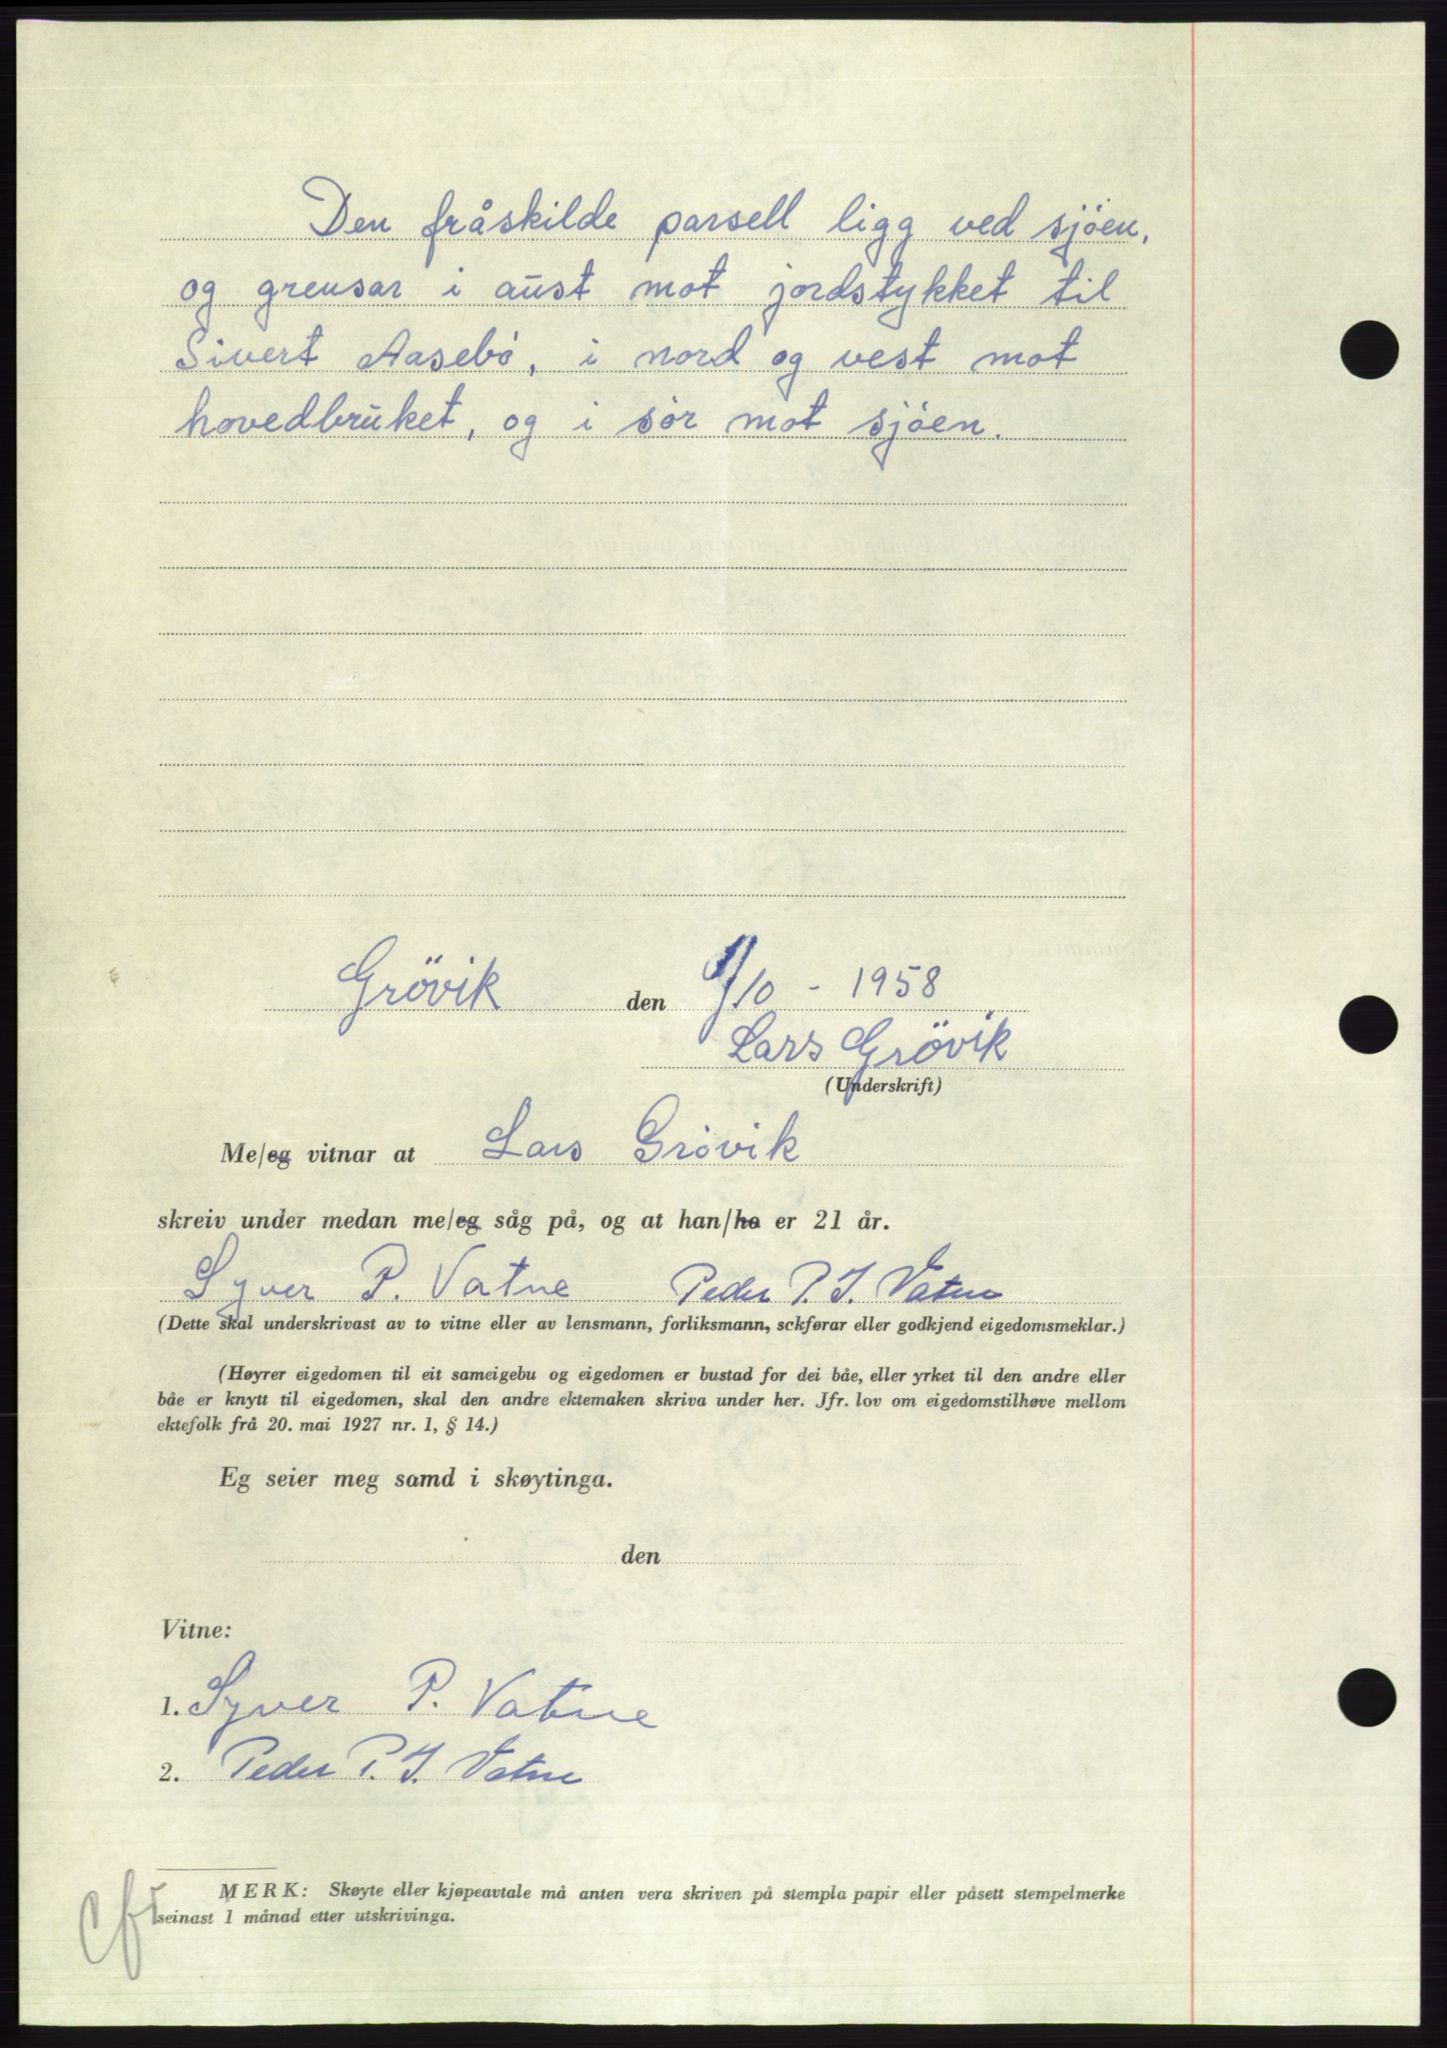 Den fråskilde parsell ligg ved sjöen,
og grensar i aust mot jordstykket til
Sivert Aasebö, i nord og vest mot
hovedbruket, og i sör mot sjöen.
Grövik den 9/10 - 1958
Lars Grövik
(Underskrift)
Me/eg vitnar at Lars Grövik
skreiv under medan me/eg såg på, og at han/ho er 21 år.
Syver P. Vatne Peder P. J. Vatne
(Dette skal underskrivast av to vitne eller av lensmann, forliksmann, sckførar eller godkjend eigedomsmeklar.)
(Høyrer eigedomen til eit sameigebu og eigedomen er bustad for dei båe, eller yrket til den andre eller
båe er knytt til eigedomen, skal den andre ektemaken skriva under her. Jfr. lov om eigedomstilhøve mellom
ektefolk frå 20. mai 1927 nr. 1, § 14.)
Eg seier meg samd i skøytinga.
den
Vitne:
1. Syver P. Vatne
2. Peder P. J. Vatne
MERK: Skøyte eller kjøpeavtale må anten vera skriven på stempla papir eller påsett stempelmerke
seinast 1 månad etter utskrivinga.